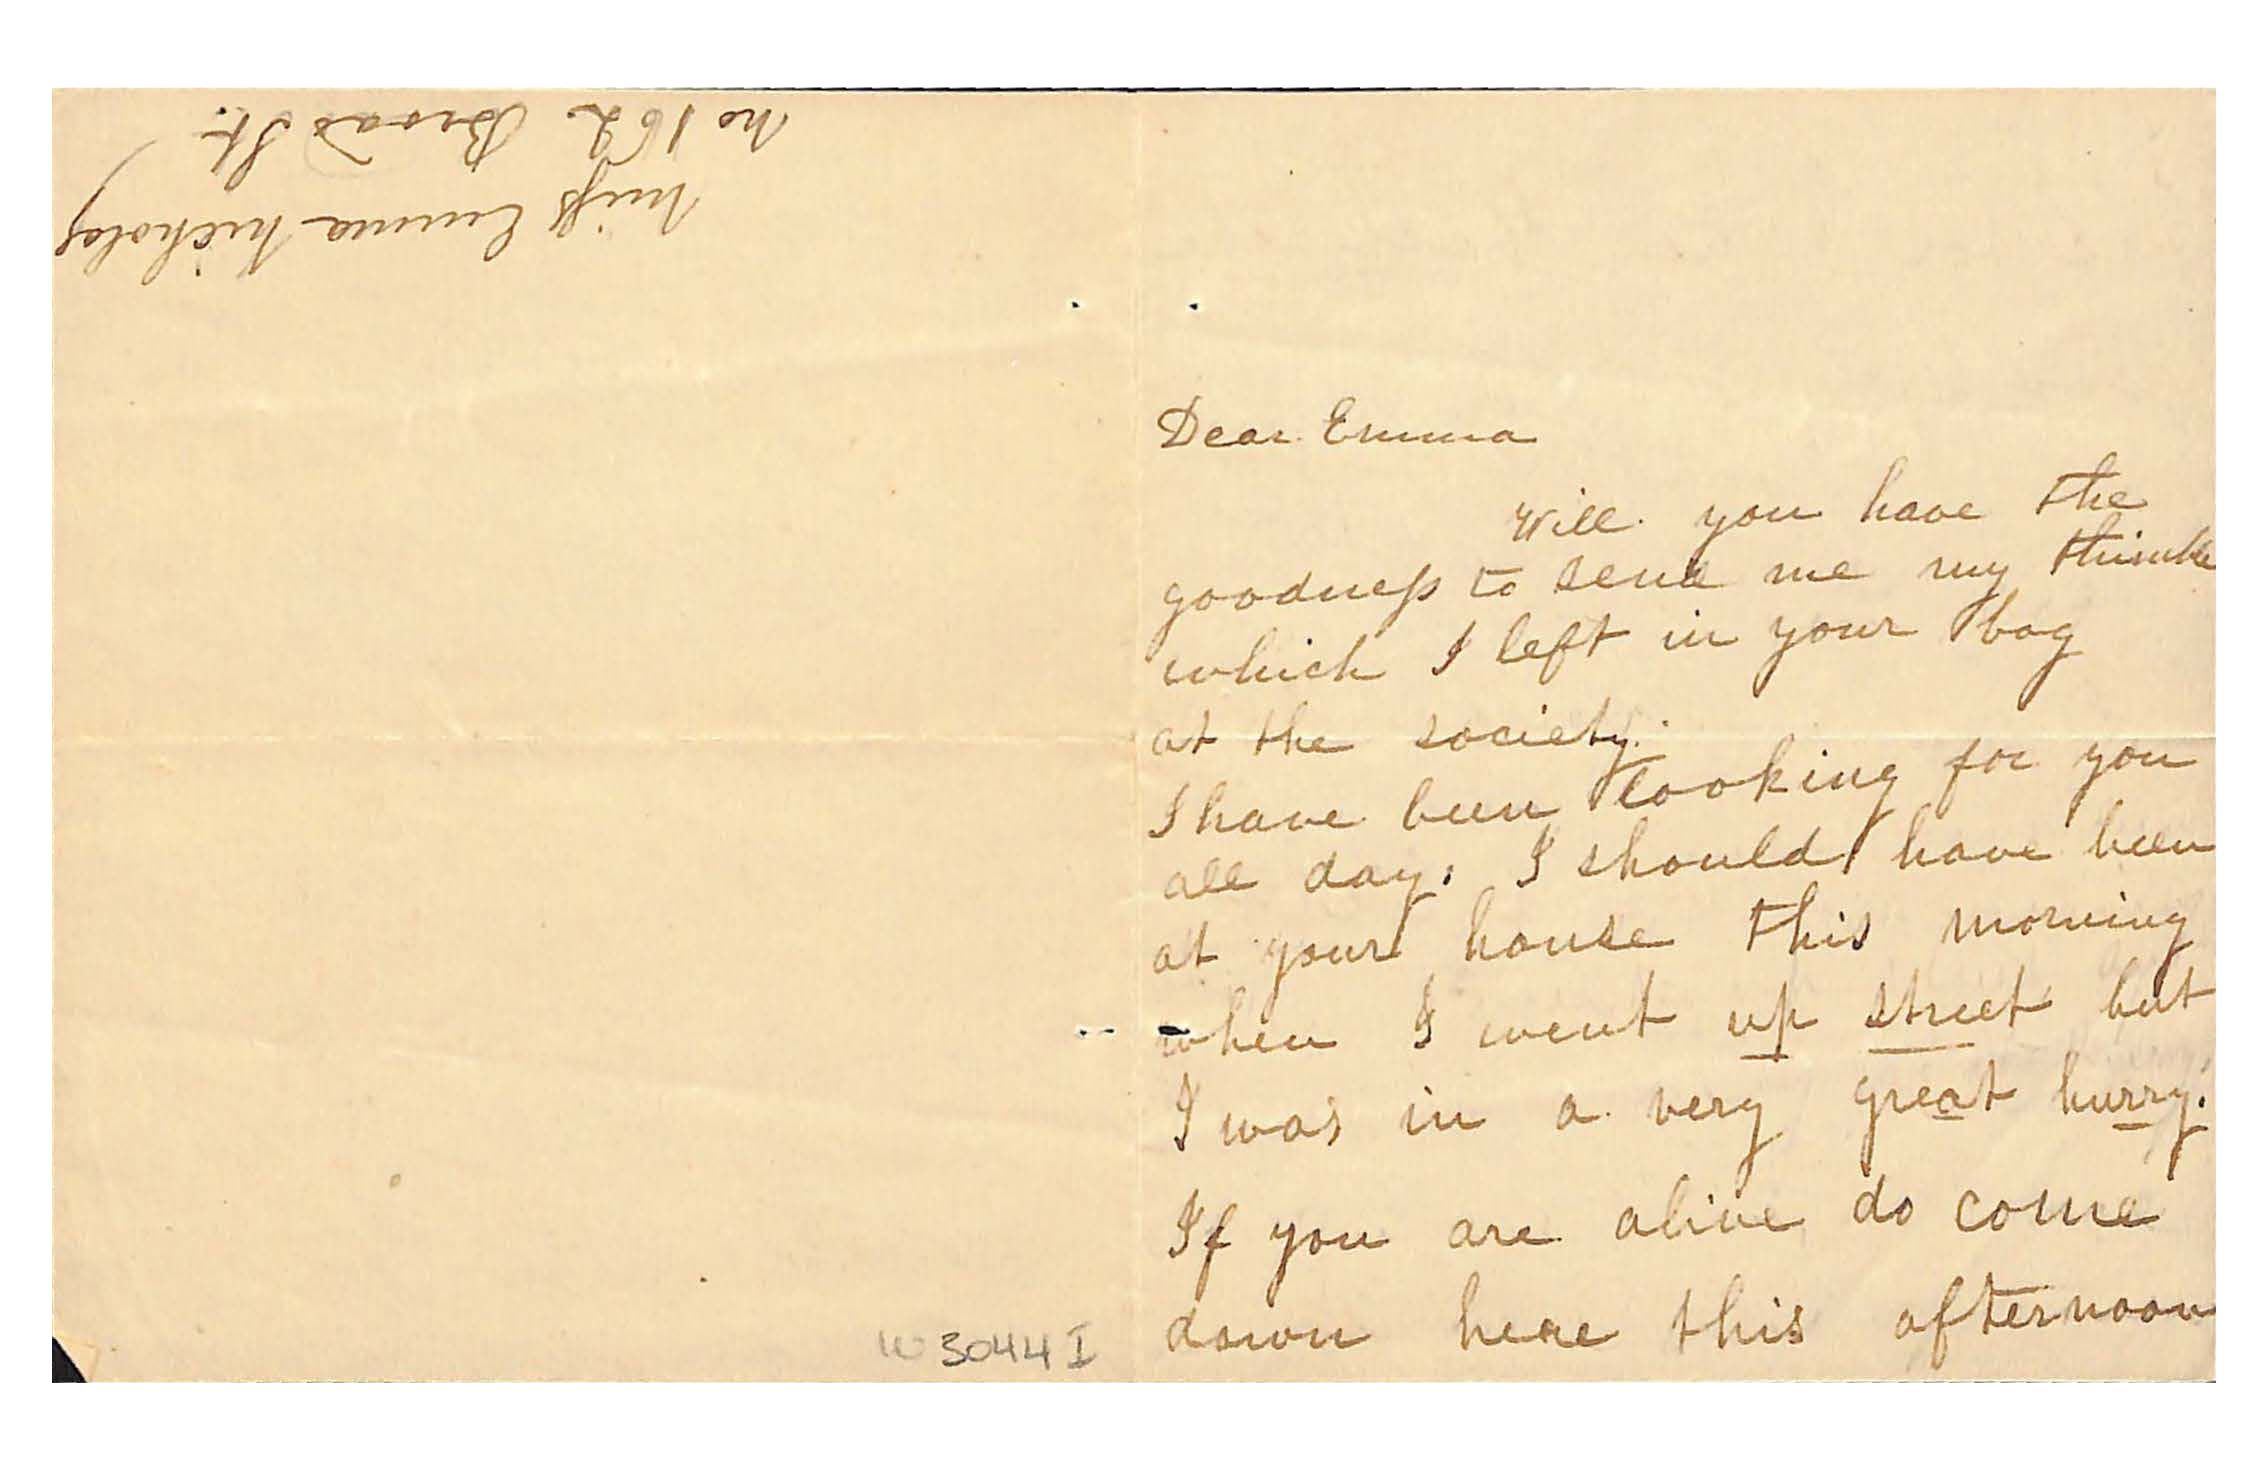 Miss Emma Nichols
No 162 Broad St.
Dear Emma
Will you have the
goodness to send me my thimble
which I left in your bag
at the society.
I have been looking for you
all day. I should have been
at your house this morning
when I went up street but
I was in a very great hurry.
If you are alive do come
down here this afternoon
W3044I